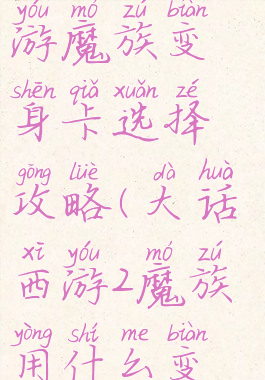 yóu mó zú biàn
游魔族变
shēn qiǎ xuǎn zé
身卡选择
gōng lüè dà huà
攻略(大话
xī yóu mó zú
西游2魔族
yòng shí me biàn
用什么变